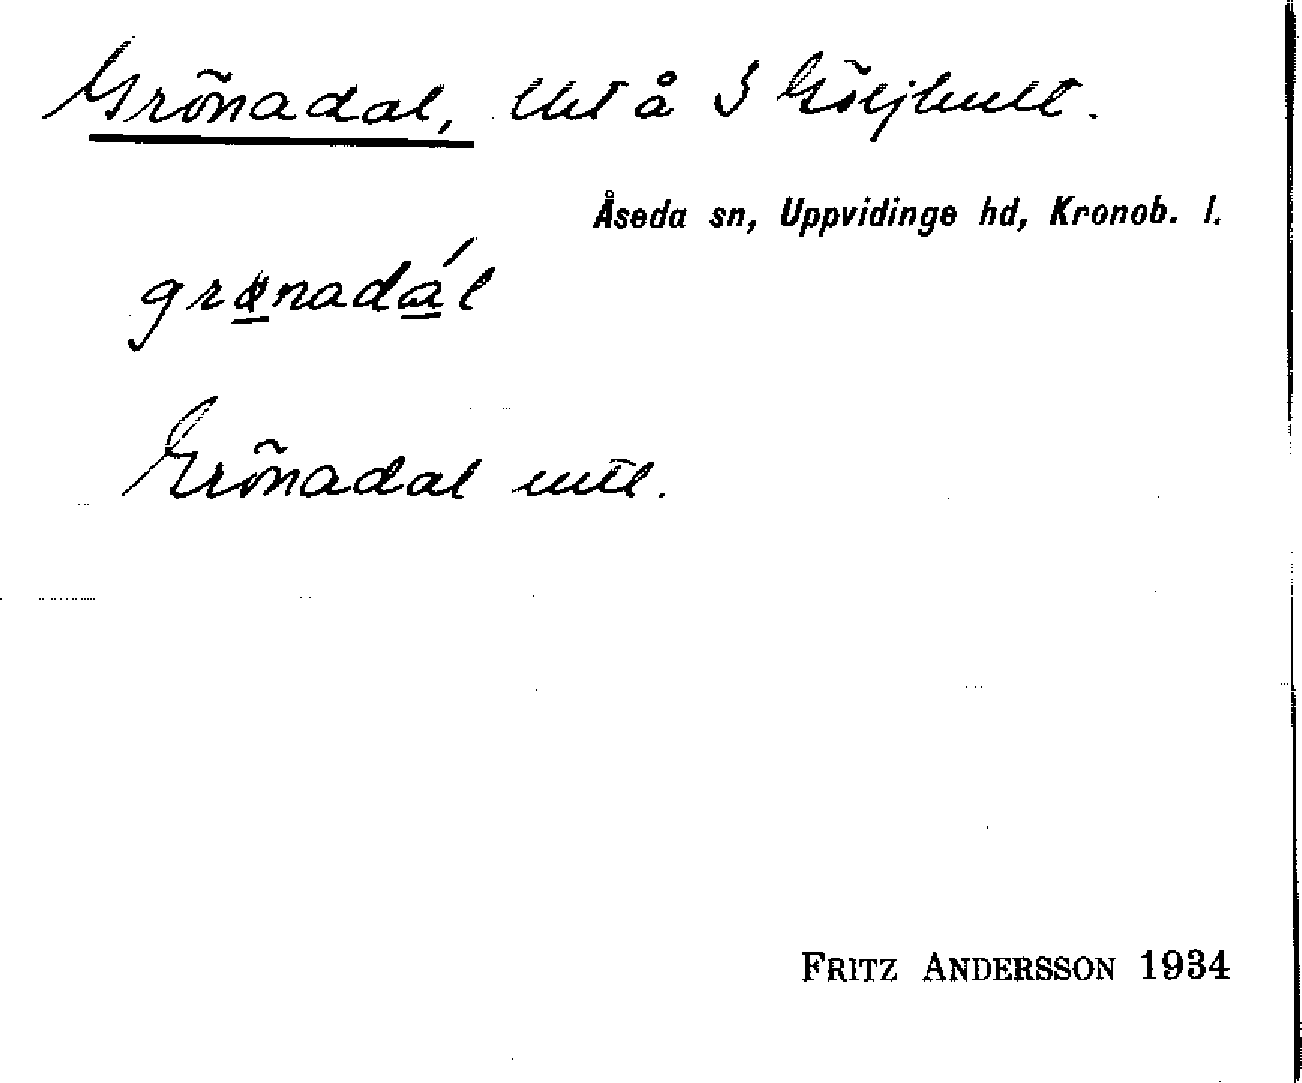 Grönadal, lht å S Göljhult.
Åseda sn, Uppvidinge hd, Kronob. l.
grønadál
Grönadal uttl.
FRITZ ANDERSSON 1934